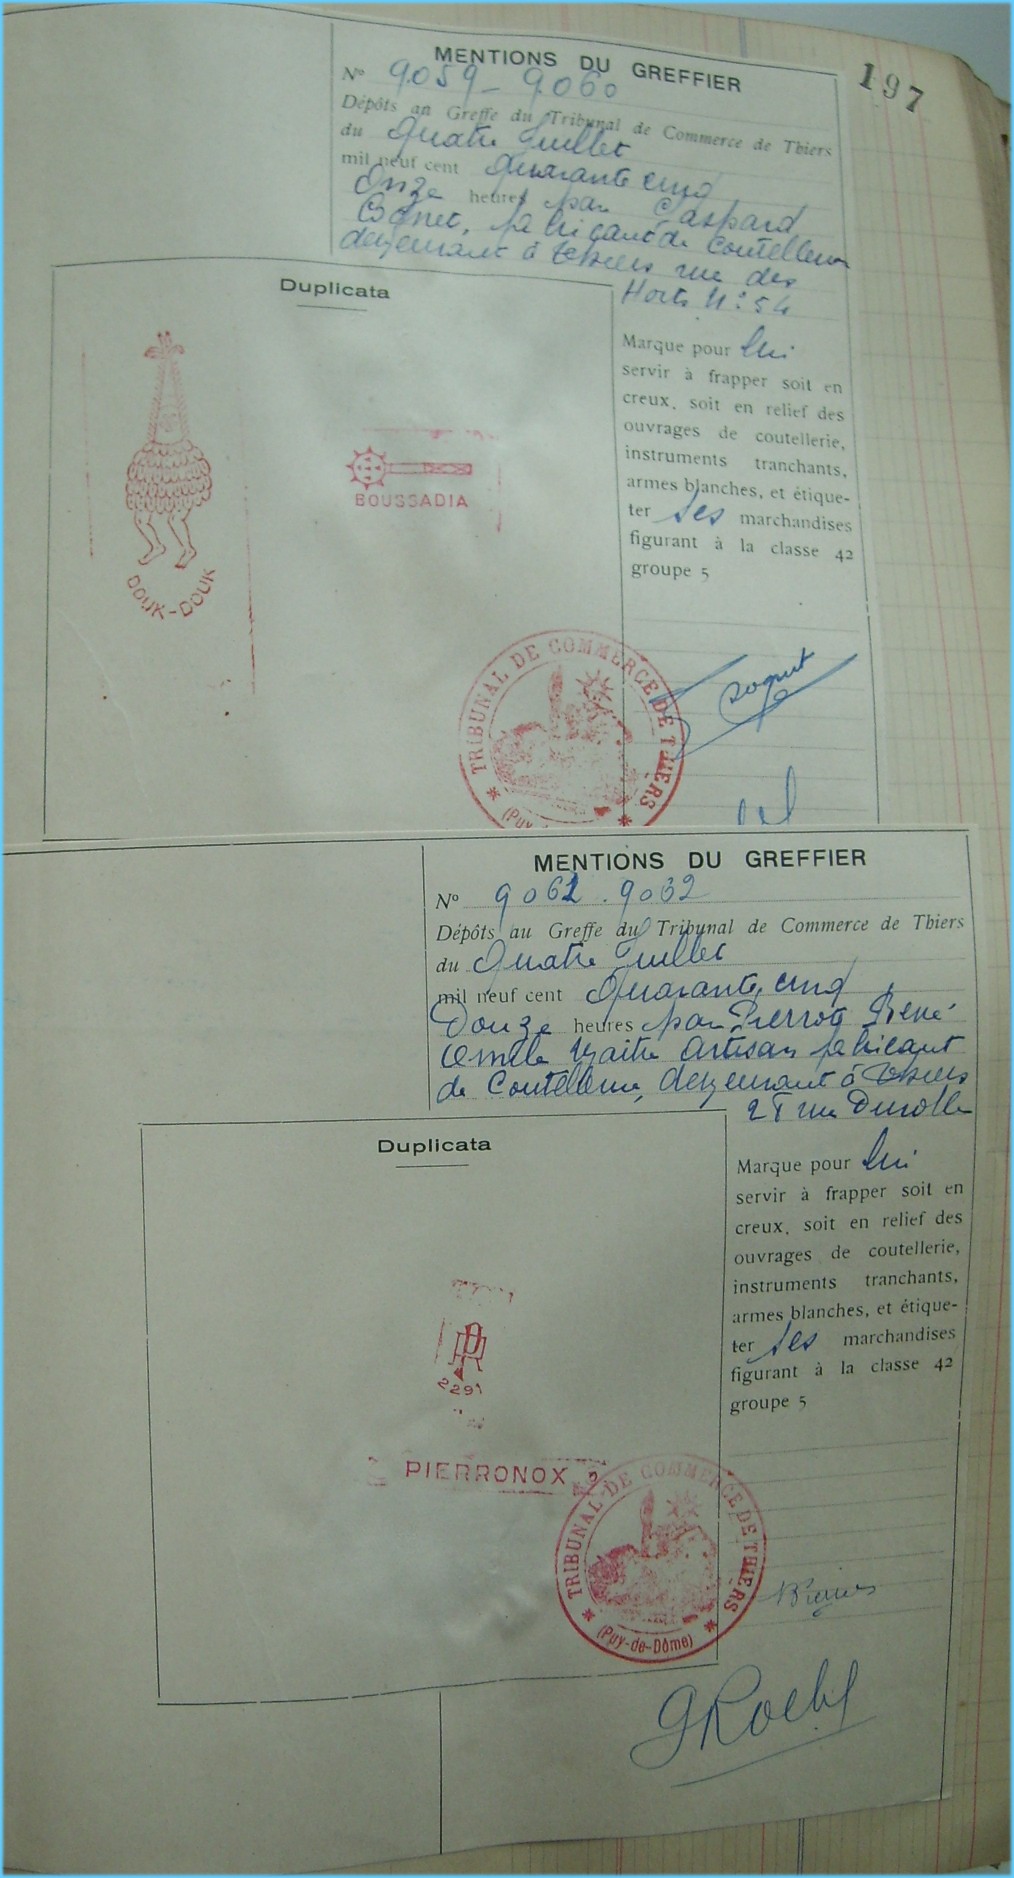 197
MENTIONS DU GREFFIER
N° 9059 - 9060
Dépôts au Greffe du Tribunal de Commerce de Thiers
du Quatre Juillet
mil neuf cent Quarante cinq
Onze heures par Gaspard
fabricant de Coutellerie
demeurant à Thiers rue des
Horts N° 54
Duplicata
DOUK-DOUK
BOUSSADIA
Marque pour lui
servir à frapper soit en
creux, soit en relief des
ouvrages de coutellerie,
instruments tranchants,
armes blanches, et étique-
ter ses marchandises
figurant à la classe 42
groupe 5
TRIBUNAL DE COMMERCE DE THIERS
MENTIONS DU GREFFIER
N° 9061 . 9032
Dépôts au Greffe du Tribunal de Commerce de Thiers
du Quatre Juillet
mil neuf cent Quarante cinq
Douze heures par Pierrot René
Maître Artisan fabricant
de Coutellerie, demeurant à Thiers
rue Durolle
Duplicata
2291
PIERRONOX
Marque pour lui
servir à frapper soit en
creux, soit en relief des
ouvrages de coutellerie,
instruments tranchants,
armes blanches, et étique-
ter ses marchandises
figurant à la classe 42
groupe 5
TRIBUNAL DE COMMERCE DE THIERS
(Puy-de-Dôme)